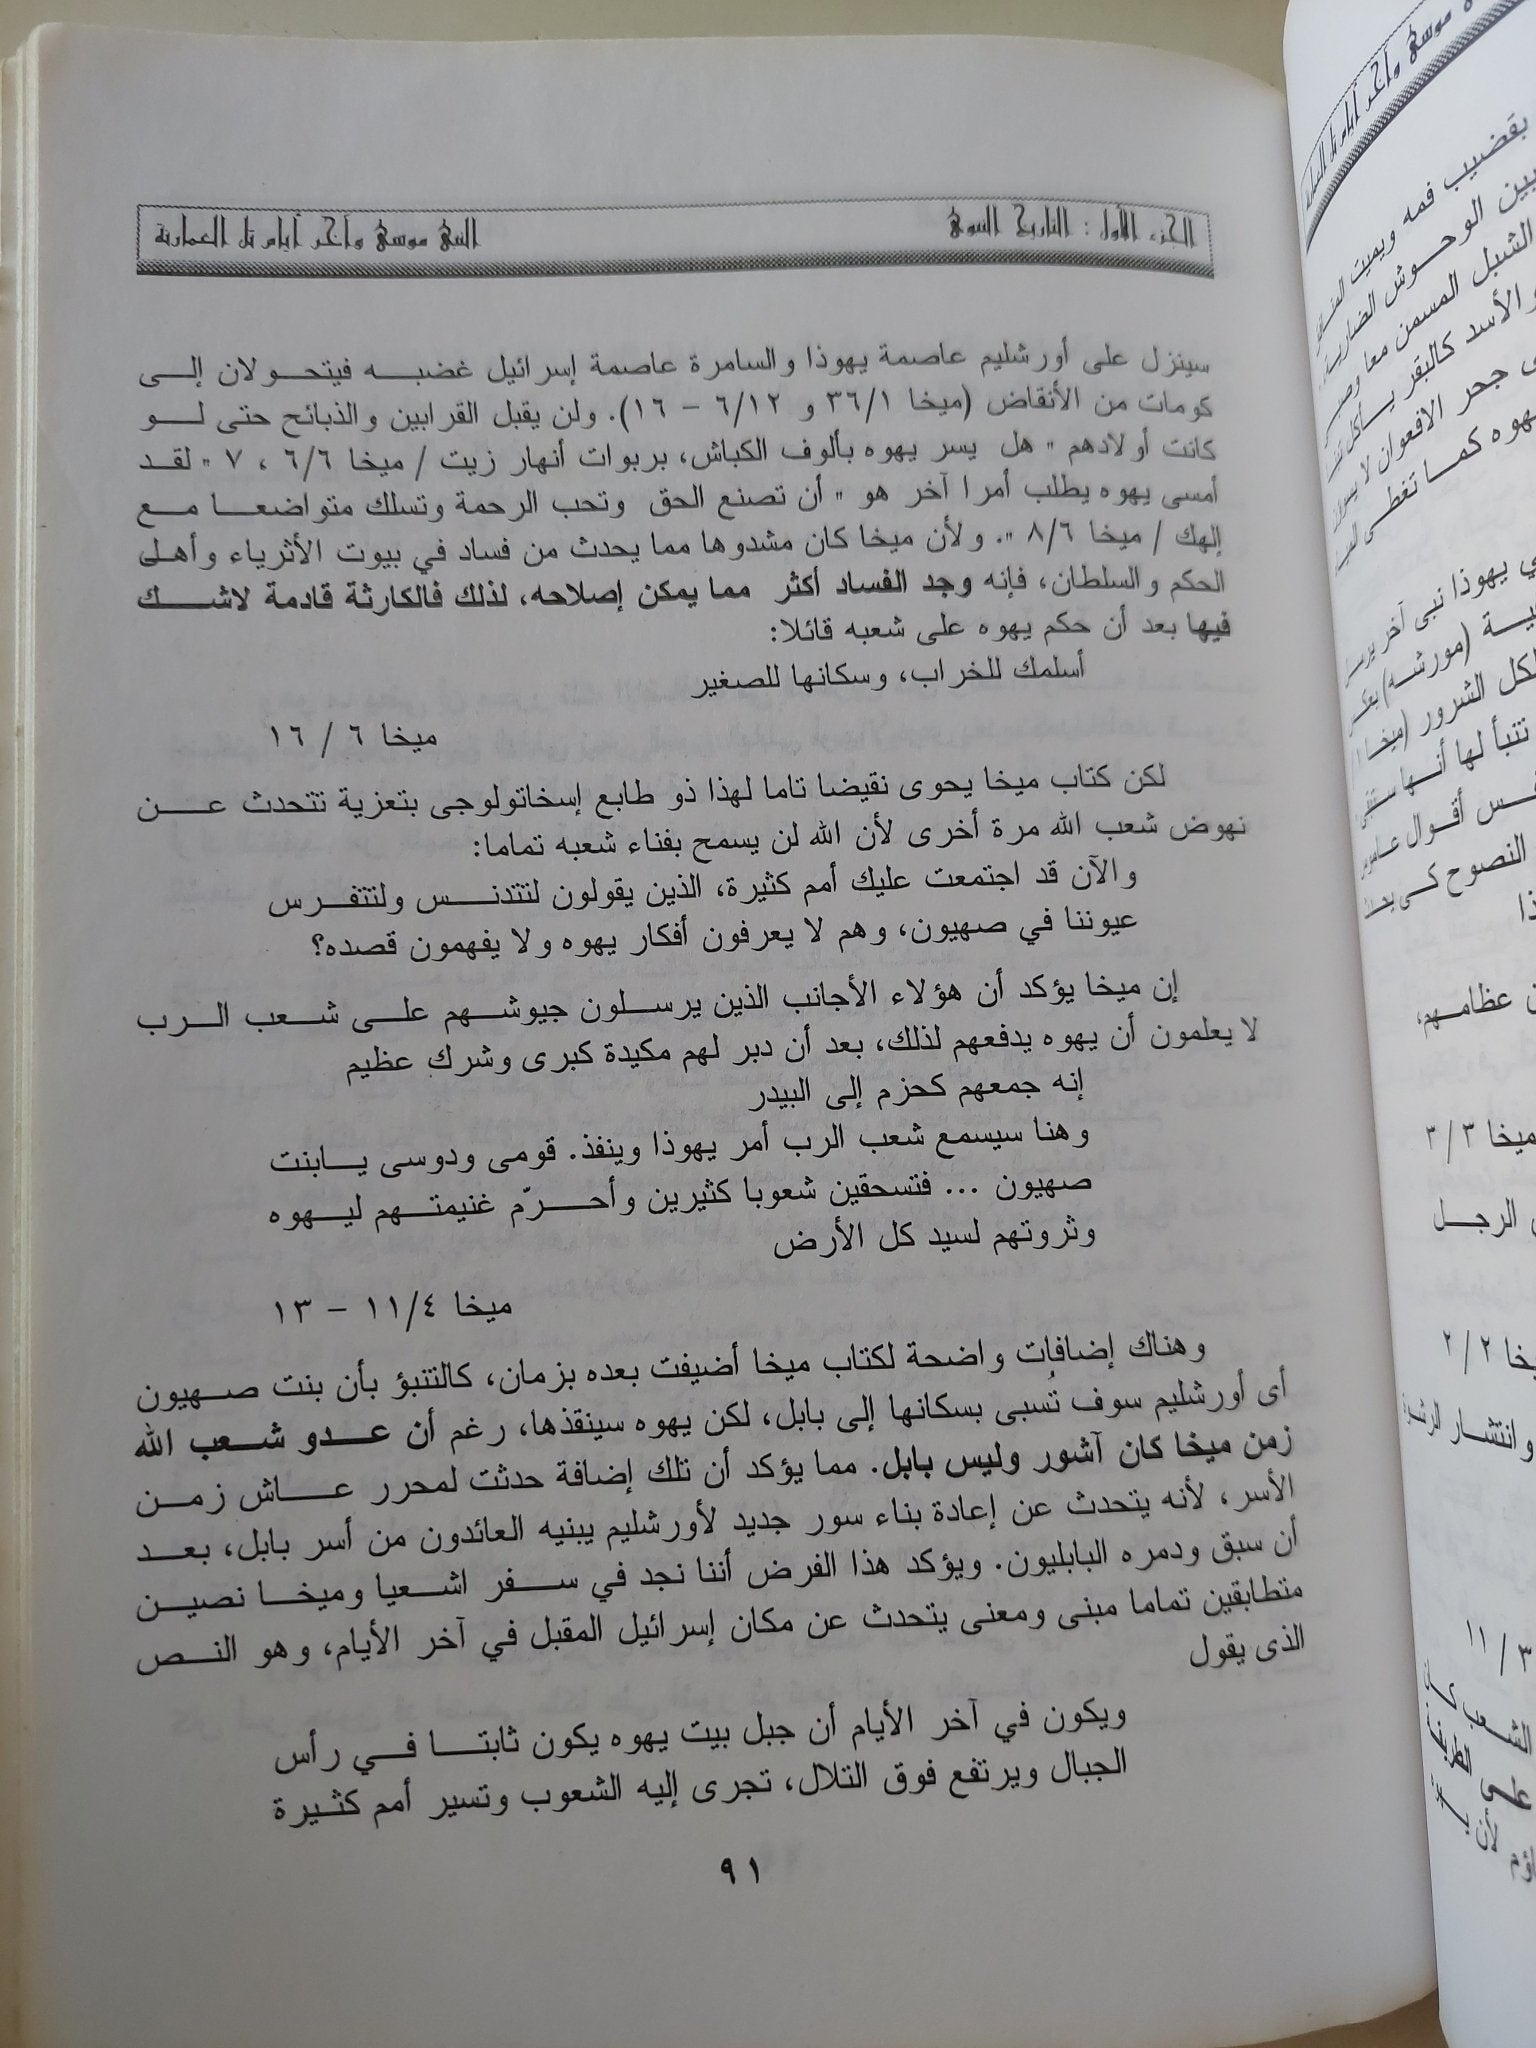 الجزء الأول : التاريخ النبوى
النبى موسى وآخر أيام تل العمارنة
سينزل على أورشليم عاصمة يهوذا والسامرة عاصمة إسرائيل غضبه فيتحولان إلى
كومات من الأنقاض (ميخا ٣٦/١ و ٦/١٢ – ١٦). ولن يقبل القرابين والذبائح حتى لو
كانت أولادهم " هل يسر يهوه بألوف الكباش، بربوات أنهار زيت / ميخا ٦/٦ ، ٧ " لقد
أمسى يهوه يطلب أمرا آخر هو " أن تصنع الحق وتحب الرحمة وتسلك متواضعا مع
إلهك / ميخا ٨/٦ ". ولأن ميخا كان مشدوها مما يحدث من فساد في بيوت الأثرياء وأهلى
الحكم والسلطان، فإنه وجد الفساد أكثر مما يمكن إصلاحه، لذلك فالكارثة قادمة لاشك
فيها بعد أن حكم يهوه على شعبه قائلا:
أسلمك للخراب، وسكانها للصغير
ميخا ٦ / ١٦
لكن كتاب ميخا يحوى نقيضا تاما لهذا ذو طابع إسخاتولوجى بتعزية تتحدث عن
نهوض شعب الله مرة أخرى لأن الله لن يسمح بفناء شعبه تماما:
والآن قد اجتمعت عليك أمم كثيرة، الذين يقولون لتتدنس ولتتفرس
عيوننا في صهيون، وهم لا يعرفون أفكار يهوه ولا يفهمون قصده؟
إن ميخا يؤكد أن هؤلاء الأجانب الذين يرسلون جيوشهم على شعب الرب
لا يعلمون أن يهوه يدفعهم لذلك، بعد أن دبر لهم مكيدة كبرى وشرك عظيم
إنه جمعهم كحزم إلى البيدر
وهنا سيسمع شعب الرب أمر يهوذا وينفذ. قومى ودوسى يابنت
صهيون ... فتسحقين شعوبا كثيرين وأحرّم غنيمتهم ليهوه
وثروتهم لسيد كل الأرض
ميخا ١١/٤ – ١٣
وهناك إضافات واضحة لكتاب ميخا أضيفت بعده بزمان، كالتنبؤ بأن بنت صهيون
أى أورشليم سوف تُسبى بسكانها إلى بابل، لكن يهوه سينقذها، رغم أن عدو شعب الله
زمن ميخا كان آشور وليس بابل. مما يؤكد أن تلك إضافة حدثت لمحرر عاش زمن
الأسر، لأنه يتحدث عن إعادة بناء سور جديد لأورشليم يبنيه العائدون من أسر بابل، بعد
أن سبق ودمره البابليون. ويؤكد هذا الفرض أننا نجد في سفر اشعيا وميخا نصين
متطابقين تماما مبنى ومعنى يتحدث عن مكان إسرائيل المقبل في آخر الأيام، وهو النص
الذى يقول
ويكون في آخر الأيام أن جبل بيت يهوه يكون ثابتا في رأس
الجبال ويرتفع فوق التلال، تجرى إليه الشعوب وتسير أمم كثيرة
٩١
موسى وآخر أيام تل العمارنة
بقضيب فمه ويميت
بين الوحوش الضارية
الشبل المسمن معا
والأسد كالبقر يأكل
جحر الافعوان لا
يهوه كما تغطى
يهوذا نبى آخر
(مورشه)
لكل الشرور (ميخا
تتبأ لها أنها
أقوال
النصوح كى
عظامهم،
ميخا ٣ / ٣
الرجل
٢ / ٢
وانتشار
٣ / ١١
الشعب
على
لأن